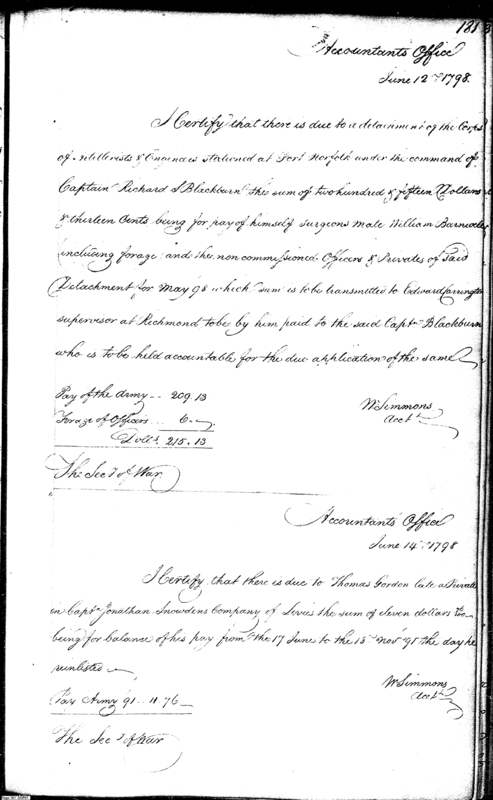 181
Accountants Office
June 12th 1798.
I Certify that there is due to a detachment of the Corps
of Artillerists & Engineers stationed at Fort Norfolk under the command of
Captain Richard S Blackburn the sum of two hundred & fifteen Dollars
& thirteen Cents being for pay of himself Surgeons Mate William Barnwell
(including forage) and the non commissioned Officers & Privates of said
Detachment for May 98 which sum is to be transmitted to Edward Carrington
supervisor at Richmond to be by him paid to the said Captn Blackburn
who is to be held accountable for the due application of the same
Pay of the Army .. 209.13
Forage of Officers ... 6..
Dolls 215.13
Wm Simmons
Acct
The Secy of War
Accountants Office
June 14th 1798
I Certify that there is due to Thomas Gordon late a Private
in Captn Jonathan Snowdens Company of Levies the sum of eleven dollars
being for balance of his pay from the 17 June to the 15th Nov 91 the day he
Pay Army 91 .. 11.76
W Simmons
Acct
The Secy of War